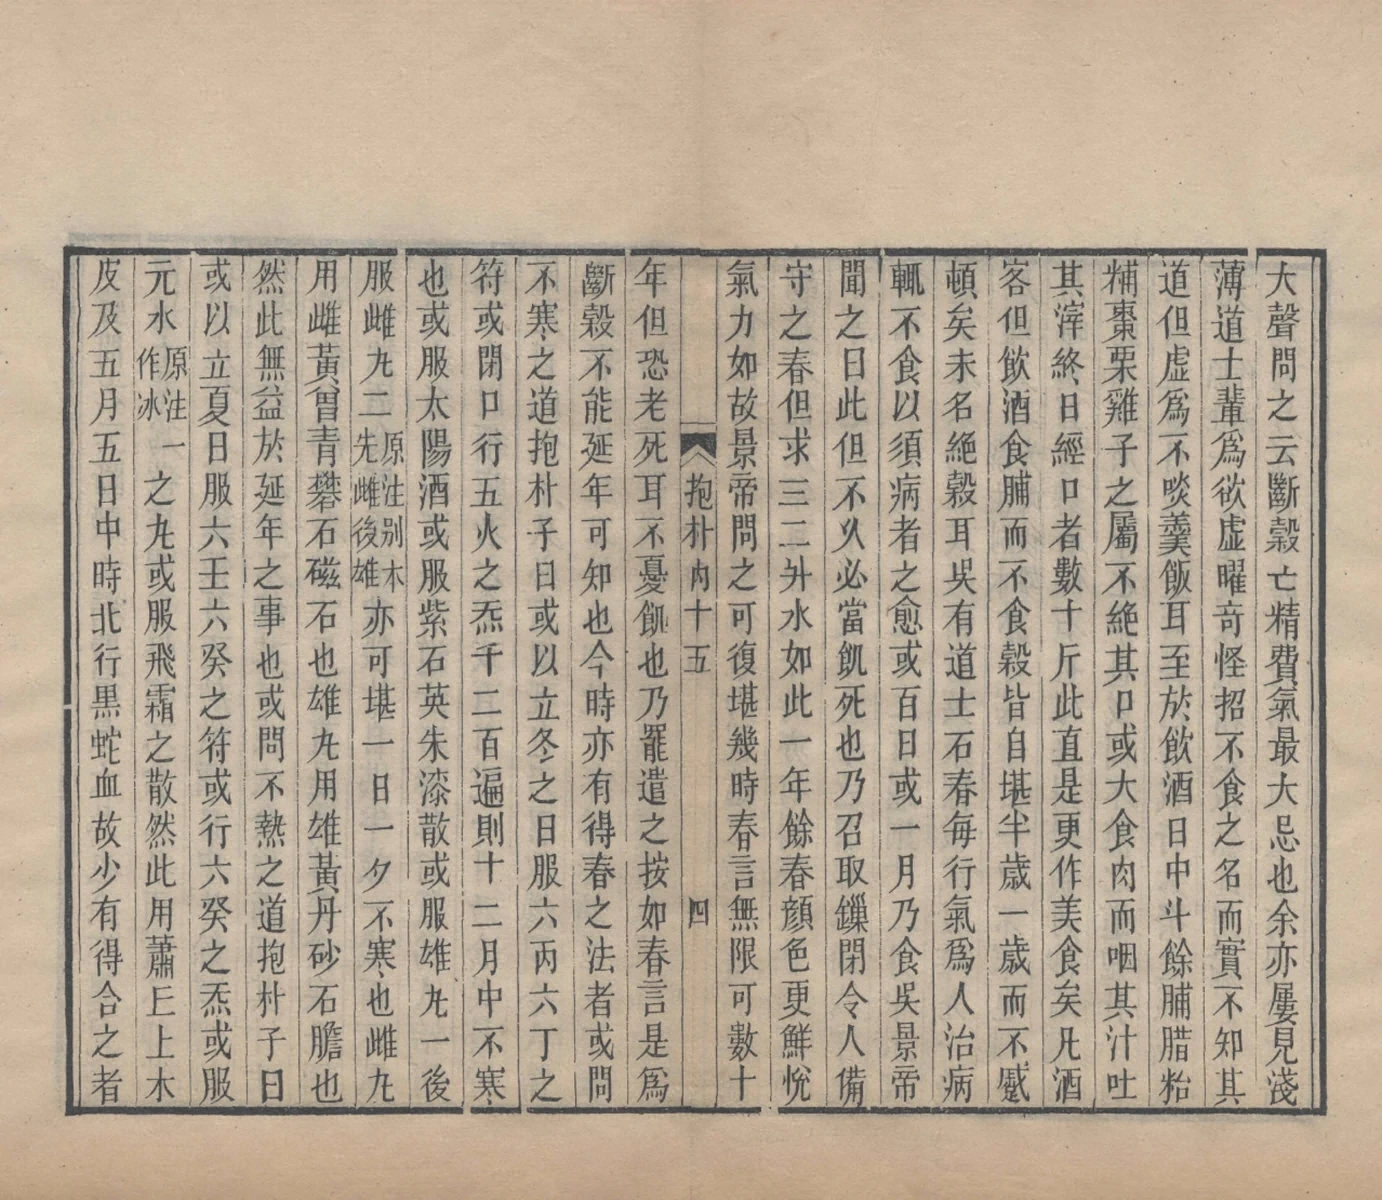 大聲問之云斷穀亡精費氣最大忌也余亦屢見淺
薄道士輩爲欲虛曜奇怪招不食之名而實不知其
道但虛爲不啖羹飯耳至於飲酒日中斗餘脯腊粭
糒棗栗雞子之屬不絶其口或大食肉而咽其汁吐
其滓終日經口者數十斤此直是更作美食矣凡酒
客但飲酒食脯而不食穀皆自堪半歲一歲而不蹙
頓矣未名絶穀耳吳有道士石春每行氣爲人治病
輒不食以須病者之愈或百日或一月乃食吳景帝
聞之曰此但不久必當飢死也乃召取鏁閉令人備
守之春但求三二升水如此一年餘春顔色更鮮悅
氣力如故景帝問之可復堪幾時春言無限可數十
抱朴內十五 四
年但恐老死耳不憂飢也乃罷遣之按如春言是爲
斷穀不能延年可知也今時亦有得春之法者或問
不寒之道抱朴子曰或以立冬之日服六丙六丁之
符或閉口行五火之炁千二百遍則十二月中不寒
也或服太陽酒或服紫石英朱漆散或服雄丸一後
服雌丸二原注别本先雌後雄亦可堪一日一夕不寒也雌丸
用雌黃曾青礬石磁石也雄丸用雄黃丹砂石膽也
然此無益於延年之事也或問不熱之道抱朴子曰
或以立夏日服六壬六癸之符或行六癸之炁或服
元水原注作冰一之丸或服飛霜之散然此用蕭𠀉上木
皮及五月五日中時北行黑蛇血故少有得合之者